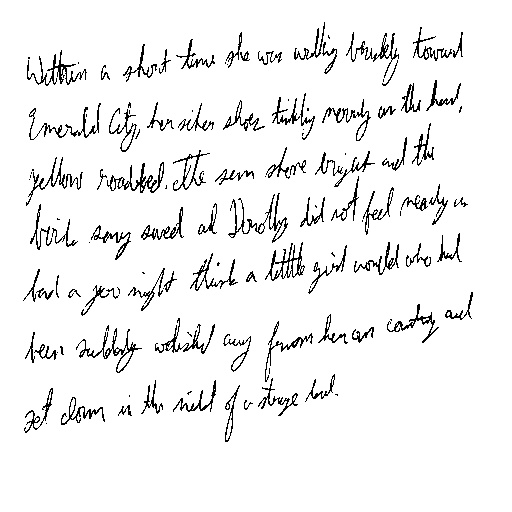 Within a short time she was walking briskly toward
Emerald City, her silver shoes tinkling merrily on the hard,
yellow roadbed. The sun shone bright and the
birds sang sweet and Dorothy did not feel nearly as
bad as you might think a little girl would who had
been suddenly whisked away from her own country and
set down in the midst of a strange land.